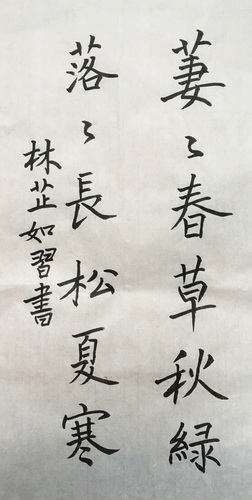 萋〻春草秋緑
落〻長松夏寒
林芷如習書